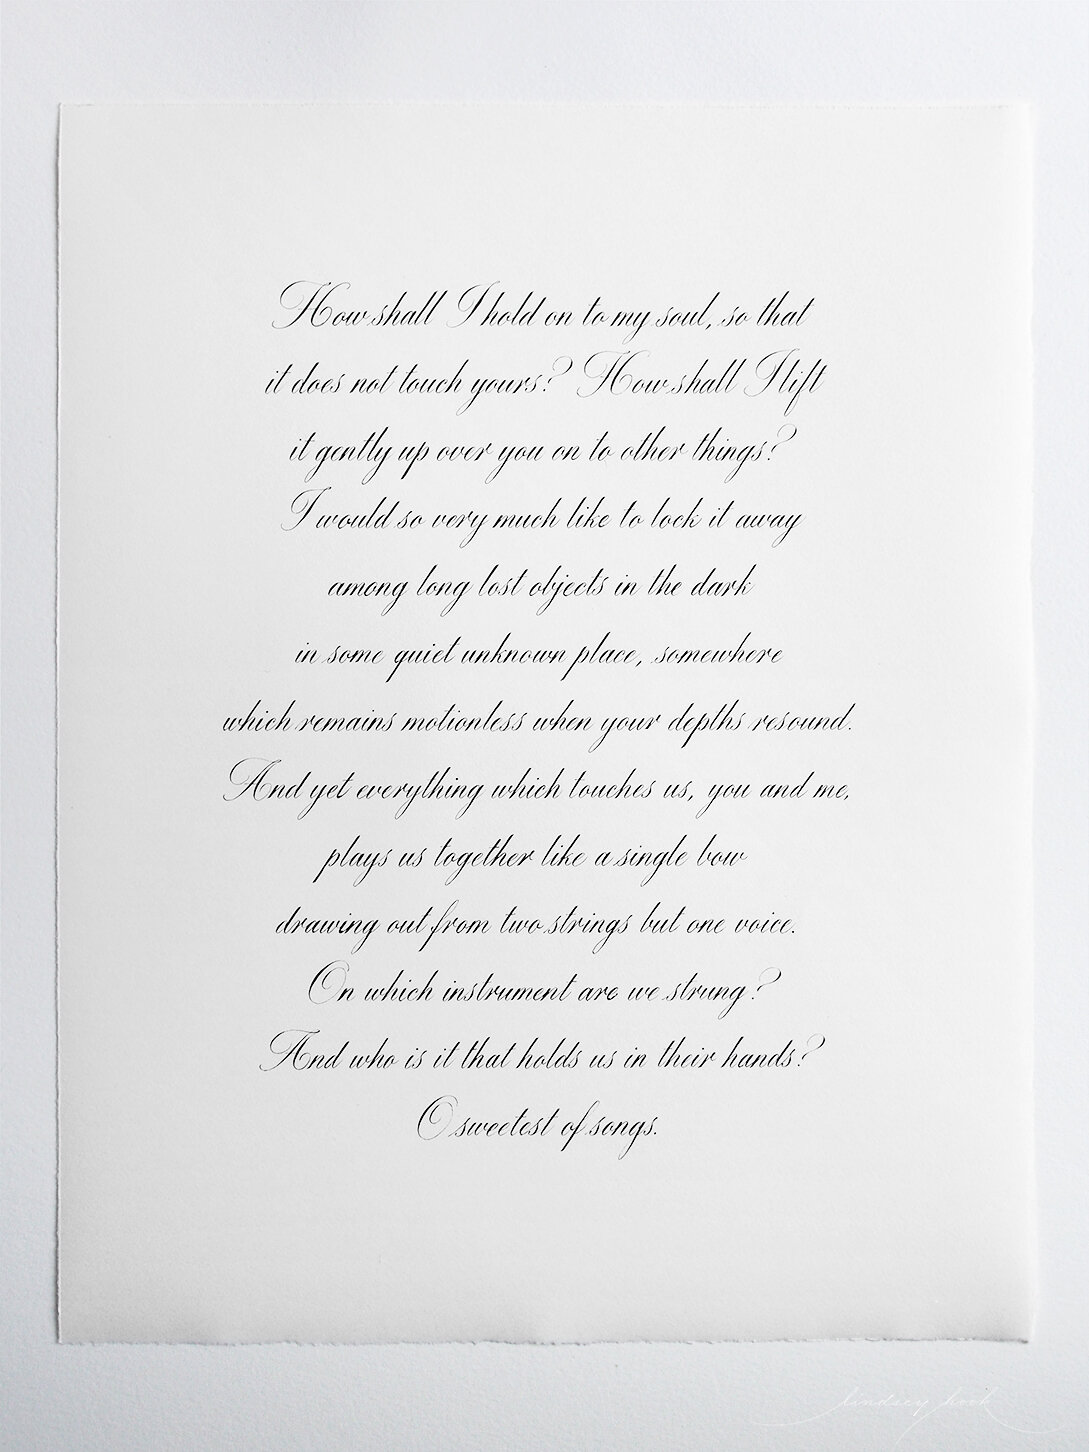 How shall I hold on to my soul, so that
it does not touch yours? How shall I lift
it gently up over you on to other things?
I would so very much like to lock it away
among long lost objects in the dark
in some quiet unknown place, somewhere
which remains motionless when your depths resound.
And yet everything which touches us, you and me,
plays us together like a single bow
drawing out from two strings but one voice.
On which instrument are we strung?
And who is it that holds us in their hands?
O sweetest of songs.
lindsey hook